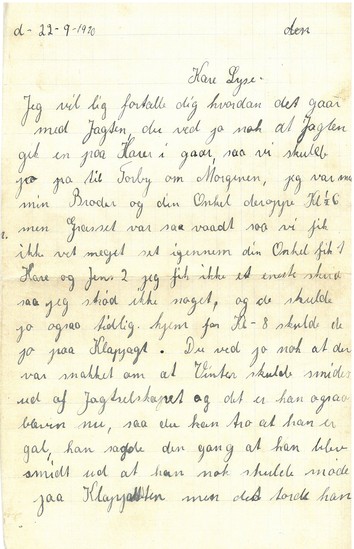 d - 22-9-1920 den
Kære Lyse.
Jeg vil lig fortælle dig hvordan det gaar
med Jagten, du ved jo nok at Jagten
gik en paa Harer i gaar, saa vi skulde
jo på til Torby om Morgenen, jeg var med
min Broder og din Onkel deroppe Kl ½ 6
men Græsset var saa vaadt saa vi fik
ikke vet meget set igennem din Onkel fik 1
Hare og Jens 2 jeg fik ikke et eneste skud
saa jeg skød ikke noget, og de skulde
jo ogsaa tidlig hjem for Kl - 8 skulde de
jo paa Klapjagt. Du ved jo nok at der
var snakket om at Vinter skulde smides
ud af Jagtselskapet og det er han ogsaa
bleven nu, saa du kan tro at han er
gal, han sagde den gang at han blev
smidt ud at han nok skulde møde
paa Klapjagten men det torde han